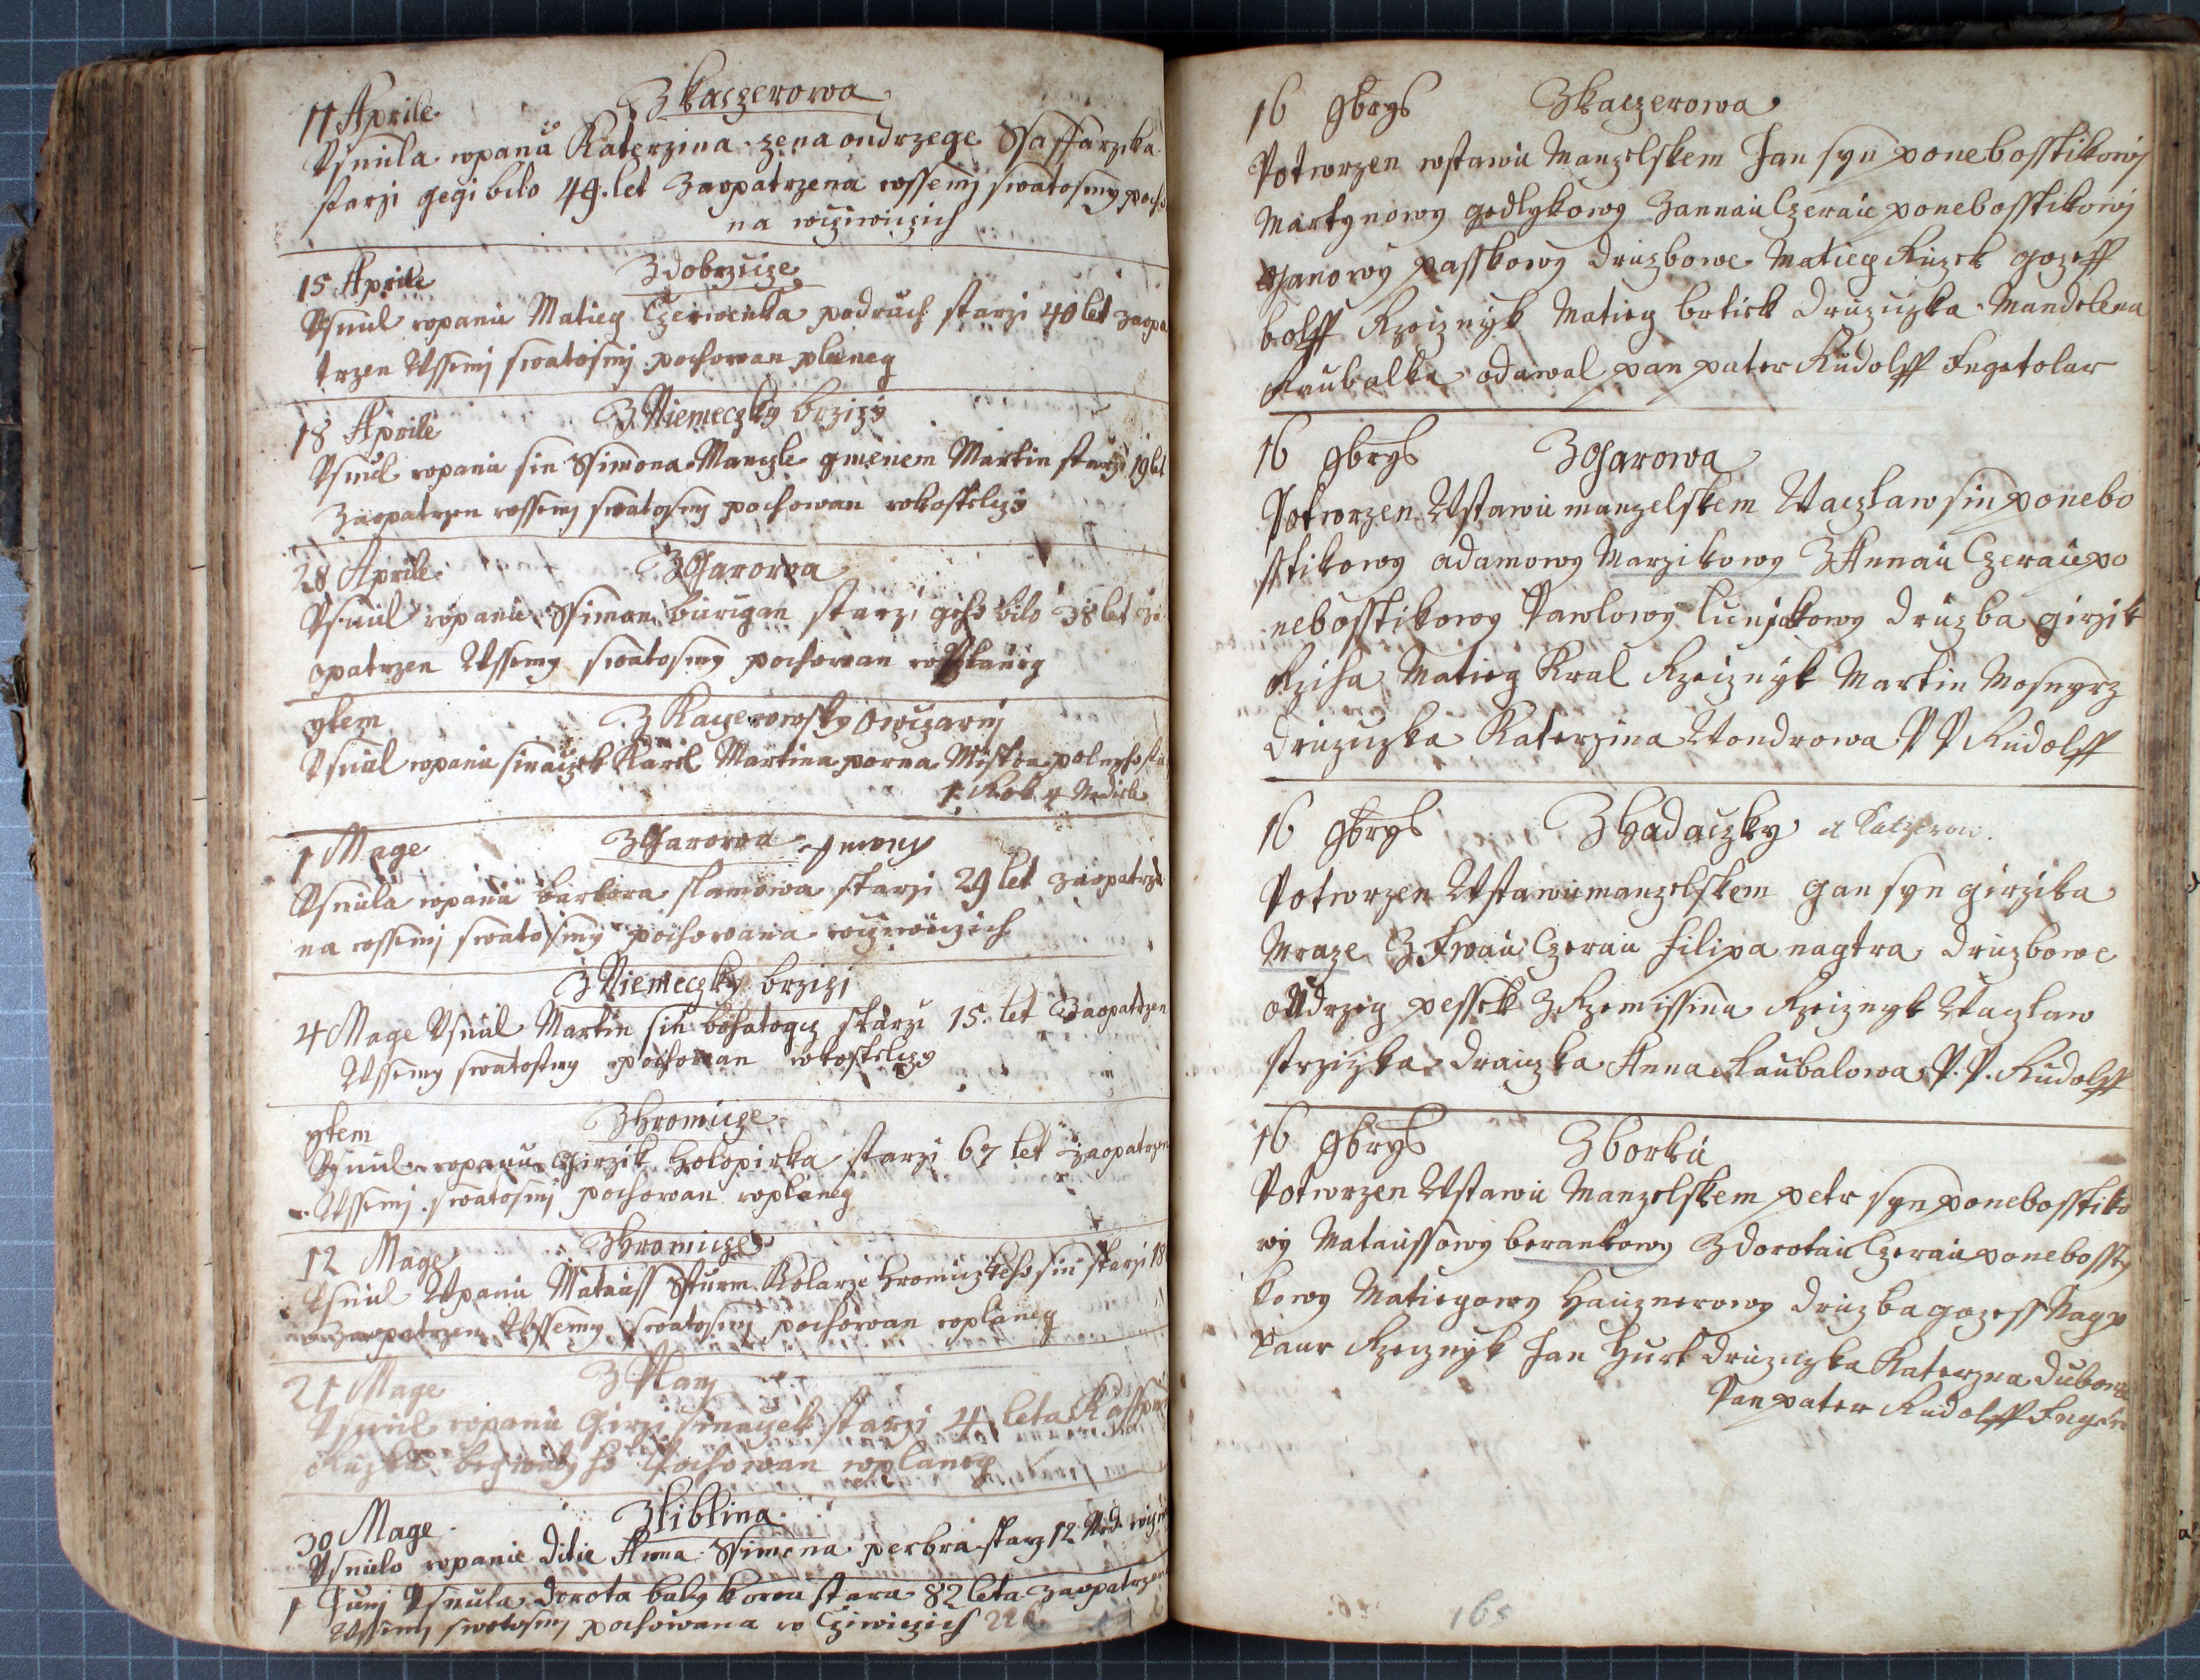 17 Aprile Zkaczerowa
Vsnula wpanu Katerzina zena ondrzege Ssaffarzika
starzi gegi bilo 44. let Zaopatrzena wssemj swatosmy poch
na wcziwiczich
15 Aprile Zdobrzicze
Vsnul wpanu Matieg Czerwenka podruch starzi 40 let zaopa
trzen Wssemj swatosmj pochowan planeg
18 Aprile Z Niemeczky brzizy
Vsnul wpanu sin Ssimona Manczle gmenem Martin starzi 19 let
Zaopatrzen wssemj swatosmj pochowan wkostelczy
28 Aprile Z Harowa
Vsnul wpanu Ssimon burigan starzi geho bilo 38 let Za
opatrzen Wssemy swatosmy pochowan wplaneg
ytem Z Kaczerowsky Owczarnj
Vsnul wpanu sinaczek Karel Martina porna Mistra polnyho sta
1. Rok 4 Nedicle
1 Mage Z Harowa
Vsnula wpanu barbora slamowa starzi 29 let zaopatrze
na wssemj swatosmy pochowana wcziwiczich
Z Niemeczky brzizi
4 Mage Vsnul Martin sin bohatogcz starzi 15. let Zaopatrzen
Wssemy swatosmy pochowan wkostelczy
ytem Zhromicze
Vsnul wpanu Girzik Holopirka starzi 67 let zaopatrzen
Wssemj swatosmj pochowan wplaneg
12 Mage Zhromicze
Vsnul Wpanu Matauss Ssturm Kolarze Hromiczkeho sin starzi 18
zaopatrzen Wssemy swatosmj pochowan wplaneg
21 Mage Z Planj
Vsnul wpanu Girzi sinaczek starzi 4 leta Kasspara
Ruzka pochowan wplaneg
30 Mage Zliblina
Vsnulo wpanu Ditie Anna Ssimona perbra starz 12 Ned
1 Junj Vsnula dorota baby korna stara 82 leta zaopatrzena
Wssemj swatosmj pochowana w Cziwiczich
16 9brys Zkaczerowa
Potwrzen wstawu Manzelskem Jan syn ponebosstikowj
Martynowy godlykowy Zannau Czerau ponebosstikowj
Janowy passkowy druzbowe Matieg Ruzek gozeff
bolff Rzeznyk Matieg brtick druzuzka Mandelena
straubalka odawal pan pater Rudolff Fngetolar
16 9brys Z Harowa
Potwrzen Wstawu manzelskem Waczlaw sin ponebo
sstikowy adamowy Marzikowy Z Annau Czerau po
nebosstikowy Pawlowy lunjakowy druzba girzik
Rziha Matieg Kral Rzeiznyk Martin Mosnyrz
druzuzka Katerzina Wondrowa P P Rudolff
16 9brys Zhadaczky et Katzerow.
Potwrzen Wstawu manzelskem gan syn girzika
Mraze Z Ewau Czerau filipa nagtra druzbowe
ondrzeg pessek Z Rzemissina Rzeiznyk Waczlaw
strzizka drauzka Anna Raubalowa P. P. Rudolff
16 9brys Zborku
Potwrzen Wstawu Manzelskem petr syn ponebosstiko
wy Mataussowy berankowy Zdorotau Czerau ponebossty
kowy Matiegowy Hauznerowy druzba gozeff Nagp
paur Rzeiznyk Jan Hurt druzuzka Katerzna dubowa
Pan pater Rudolff
165